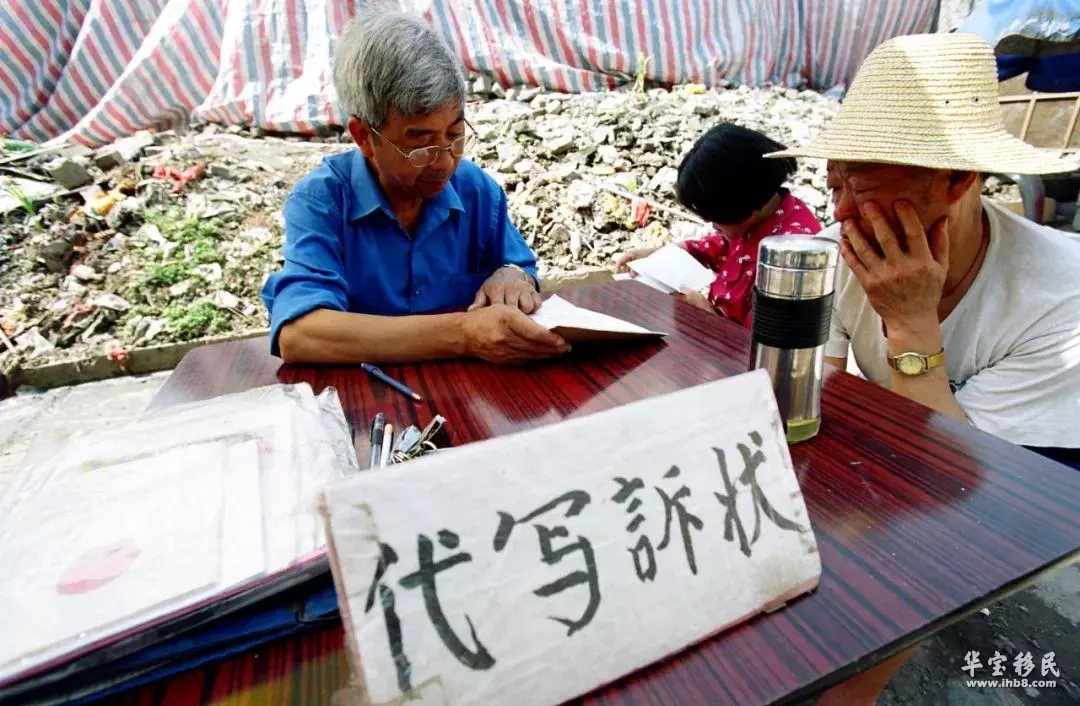 代写訴状
华宝移民
www.ihb8.com